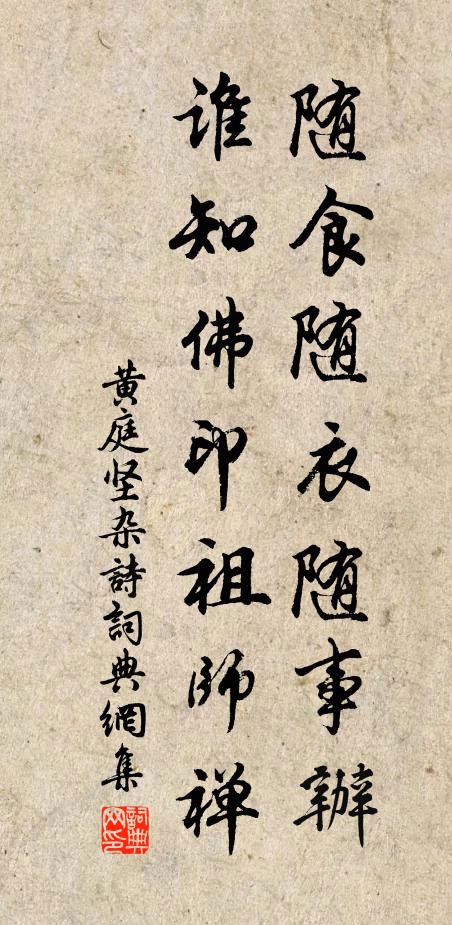 随食随衣随事辦
谁知佛印祖师禅
黄庭坚杂詩詞典網集
詞典网印